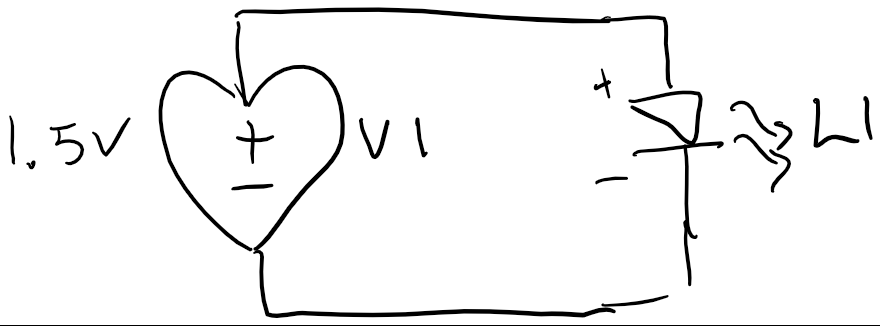 +
1.5V + V1 L1
−
−